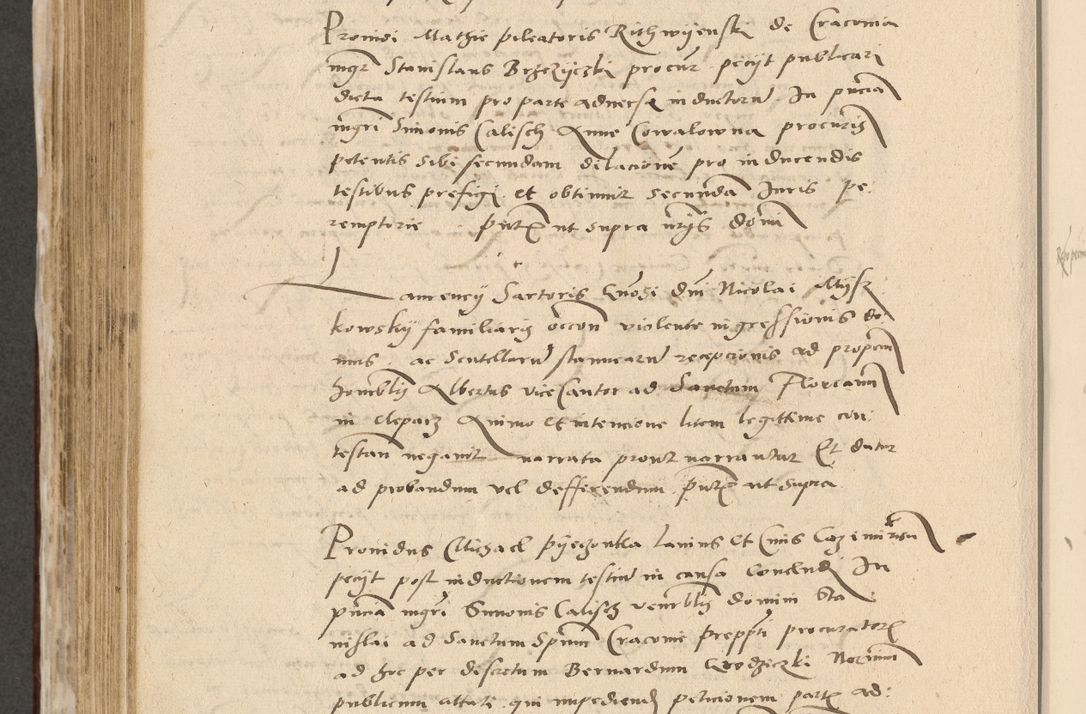 Providi Mathie pileatoris Rithwyenski de Cracovia
mgr Stanislaus Brzezyczki procur petyt publicari
dicta testium pro parte adverse inductorum In pncia
mgri Simonis Calisch Anne Cowalowna procuris
petentis sibi secundam dilacionem pro inducendis
testibus prefigi et obtinuit secundam Iuris pe
remptorie put ut supra domi
Laurency Sartoris Gnosi dni Nicolai Mysz
kowsky familiaris occon violente ingressionis do
mus ac Scutellarum stannearum recepcionis ad proposi
honoblis Albertus vice Cantor ad Sanctum Floreanum
in Cleparz Animo et intencione litem legittime con
testan negavit narrata prout narrantur Et datur
ad probandum vel defferendum put ut supra
Providus Michael lanius et Civis
petyt post inductionem testium in causa Concludi In
pncia mgri Simonis Calisch venerblis domini Sta
nislai ad Sanctum Spum Cracovie preppti procuratoris
ad hoc per descretum Bernardum Grodziczki Notarium
publicum attate qui impediendo peticionem partis ad